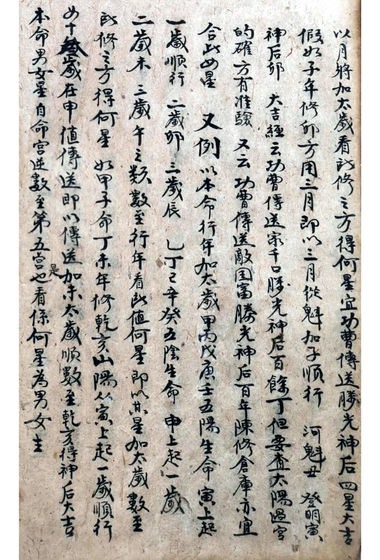 以月將加太歲看所修之方得何星宜功曹傳送勝光神后四星大吉
假如子年修卯方用三月即以三月從魁加子順行 河魁丑 登明寅
神后卯 大吉經云功曹傳送家千口勝光神后百餘丁但要查太陽過宮
的確方有准驗 又云功曹傳送敵国富勝光神后百年陳修倉庫亦宜
合此四星 又例以本命行年加太歲甲丙戊庚壬五陽生命寅上起
一歲順行 二歲卯 三歲辰 乙丁己辛癸五陰生命 申上起一歲
二歲未 三歲午之類數至行年看所值何星即以其星加太歲數至
所修之方得何星 如甲子命丁未年修乾亥山陽以寅上起一歲順行
歲在申值傳送即以傳送加未太歲順數至乾方得神后大吉
本命男女星自命宮逆數至第五宮是也看係何星為男女主